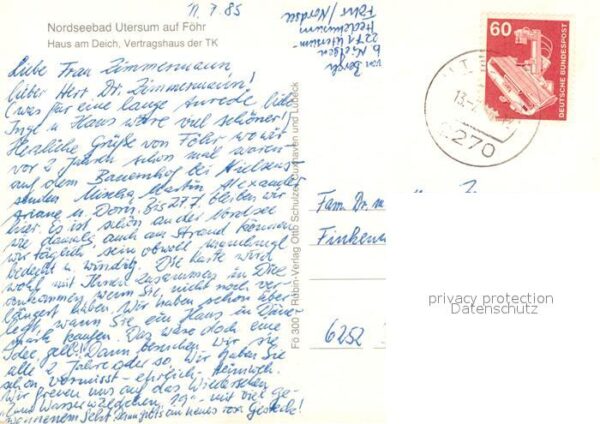 11.7.85
Nordseebad Utersum auf Föhr
Haus am Deich, Vertragshaus der TK
von Bergh
b. Nielsen
2271 Utersum
Föhr/Nordsee
Liebe Frau Zimmermann,
lieber Herr Dr. Zimmermann!
(was für eine lange Anrede,
Inge u. Hans wäre viel schöner!)
Herzliche Grüße von Föhr wo wir
vor 2 Jahren schon mal waren
auf dem Bauernhof bei Nielsens
senden Mischa, Martin Alexander
Ariane u. Doris. Bis 27.7 bleiben wir
hier. Es ist schön an der Nordsee
wie damals, auch am Strand können
wir täglich sein obwohl manchmal
bedeckt u. windig. Die Karte wird
wohl mit Ihnen zusammen in
ankommen, wenn Sie nicht noch ver-
längert haben. Wir haben schon über-
legt, wann Sie ein Haus in Däne-
mark kaufen. Das wäre doch eine
Idee, gell! Dann besuchen wir Sie
alle 2 Jahre oder so. Wir haben Sie
schon vermisst - ehrlich -
Wir freuen uns auf das Wiedersehen
zum mit viel ge-
Sekt. gibts ein neues
Fö 300 Rabin-Verlag Otto Schulze, Cuxhaven und Lübeck
60
DEUTSCHE BUNDESPOST
13.
2270
Fam. Dr.
Finken
6252
privacy protection
Datenschutz